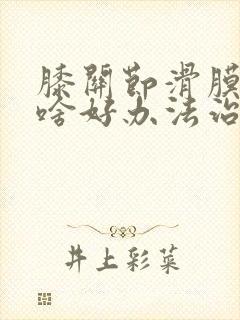 膝關節滑膜
啥好办法治
井上彩菜